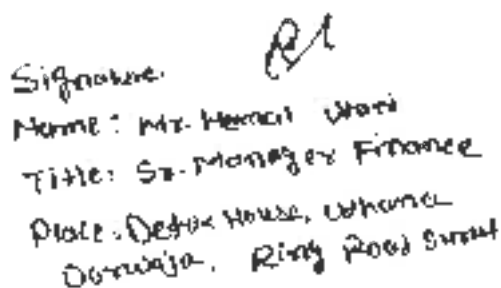 Signature
Name: Mr. Hemant
Title: Sr. Manager Finance
Place: Detox House, Udhana
Darwaja, Ring Road Surat